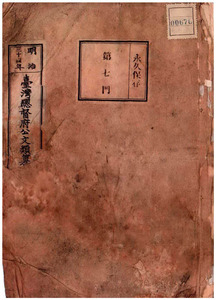 00676
永久保存
第七門
明治
三十四年
臺灣總督府公文類纂